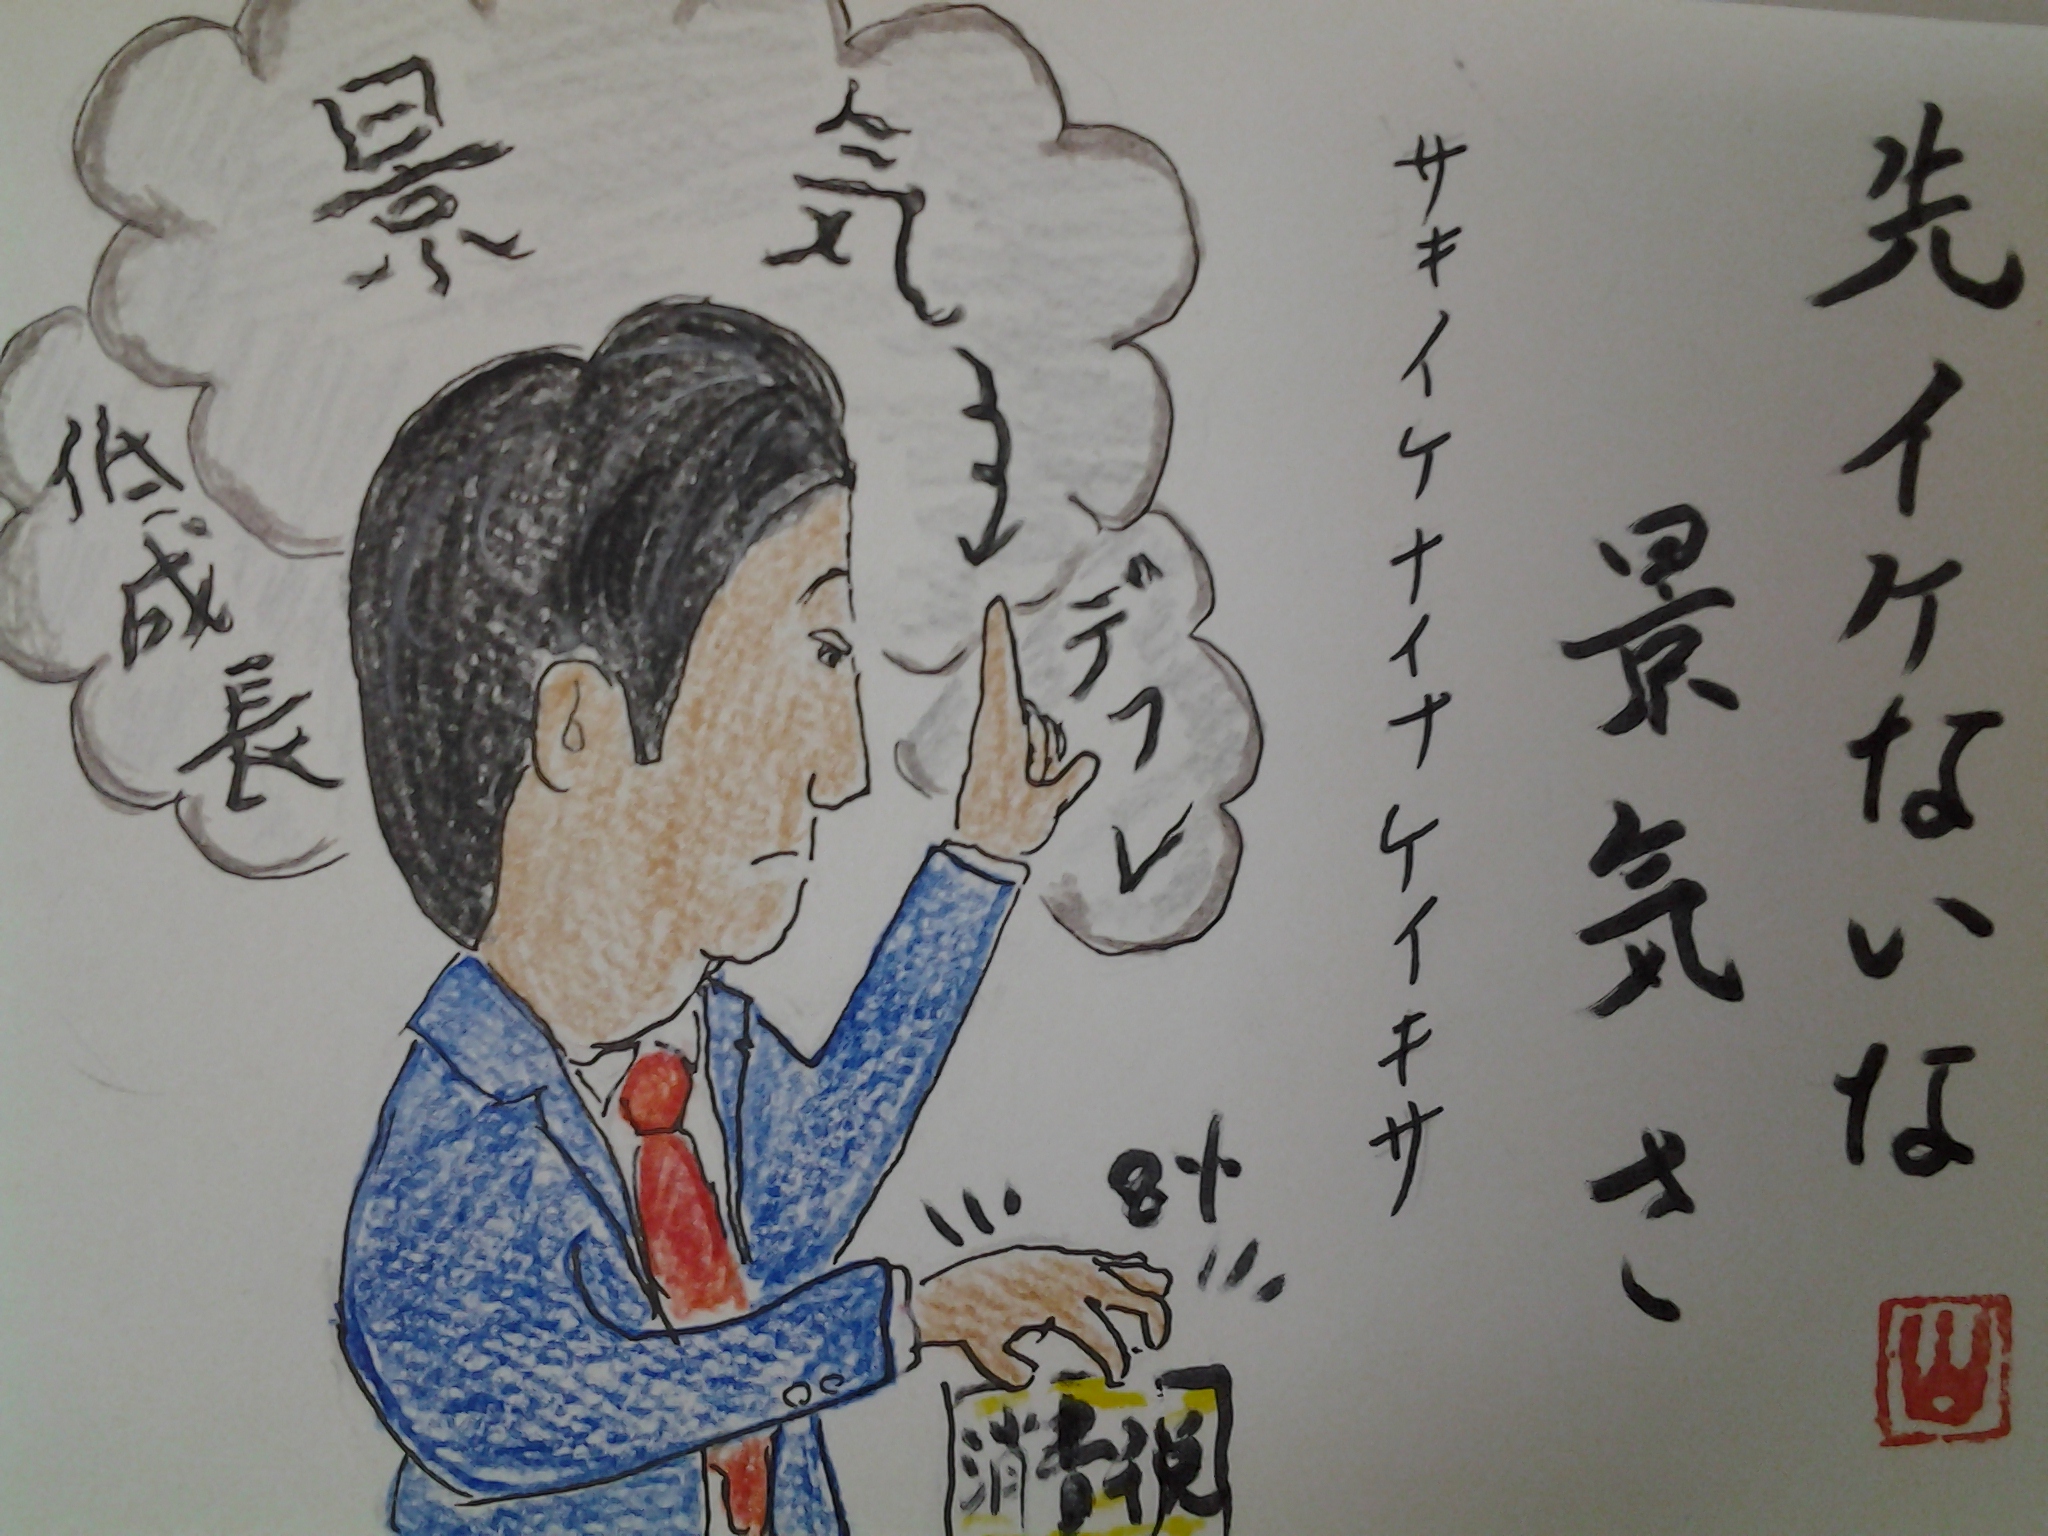 先イケないな
景気さ
サキイケナイナケイキサ
景気
デフレ
低成長
8%
消費税